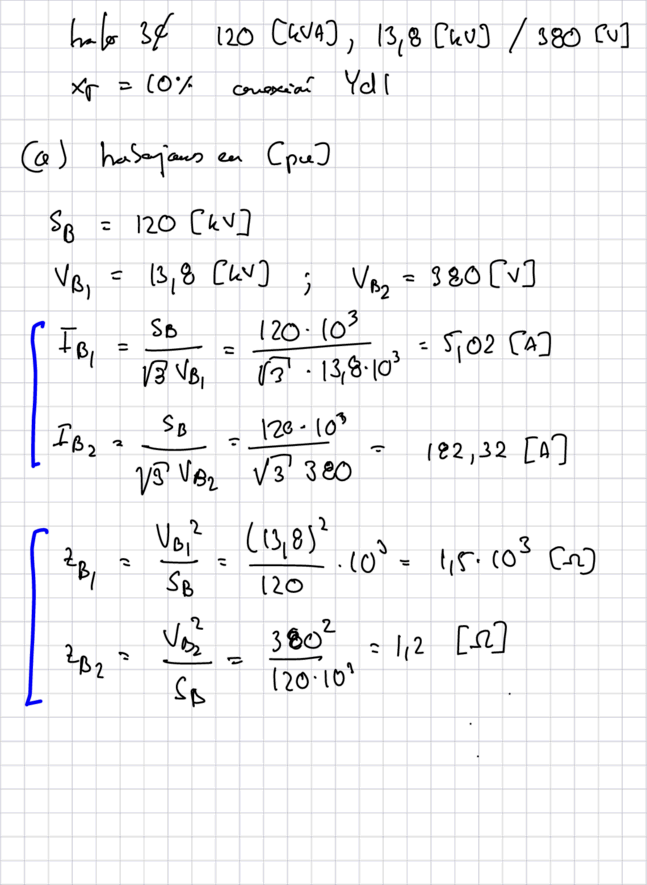 trafo 3ϕ 120 [kVA], 13,8 [kV] / 380 [V]
x_T = 10% conexión Yd1
(a) trabajamos en [pu]
S_B = 120 [kV]
V_B1 = 13,8 [kV] ; V_B2 = 380 [V]
I_B1 = S_B / (√3 V_B1) = 120·10^3 / (√3 · 13,8·10^3) = 5,02 [A]
I_B2 = S_B / (√3 V_B2) = 120·10^3 / (√3 380) = 182,32 [A]
z_B1 = V_B1^2 / S_B = (13,8)^2 / 120 · 10^3 = 1,5·10^3 [Ω]
z_B2 = V_B2^2 / S_B = 380^2 / 120·10^3 = 1,2 [Ω]